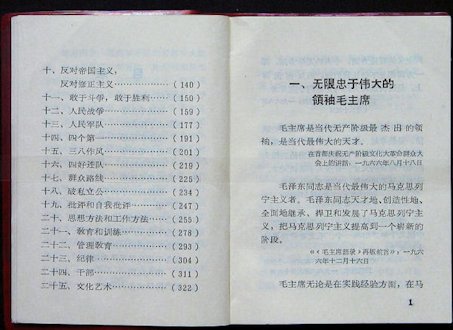 十、反对帝国主义,
反对修正主义……………(140)
十一、敢于斗争,敢于胜利……(150)
十二、人民战争………………(159)
十三、人民军队………………(177)
十四、四个第一………………(191)
十五、三八作风………………(201)
十六、四好连队………………(219)
十七、群众路线………………(225)
十八、破私立公………………(234)
十九、批评和自我批评………(247)
二十、思想方法和工作方法……(255)
二十一、教育和训练…………(278)
二十二、管理教育……………(293)
二十三、纪律…………………(304)
二十四、干部…………………(311)
二十五、文化艺术……………(322)
一、无限忠于伟大的
领袖毛主席
毛主席是当代无产阶级最杰出的领
袖,是当代最伟大的天才。
在首都庆祝无产阶级文化大革命群众大
会上的讲话,一九六六年八月十八日
毛泽东同志是当代最伟大的马克思列
宁主义者。毛泽东同志天才地、创造性地、
全面地继承、捍卫和发展了马克思列宁主
义,把马克思列宁主义提高到一个崭新的
阶段。
《〈毛主席语录〉再版前言》,一九六
六年十二月十六日
毛主席无论是在实践经验方面,在马
1